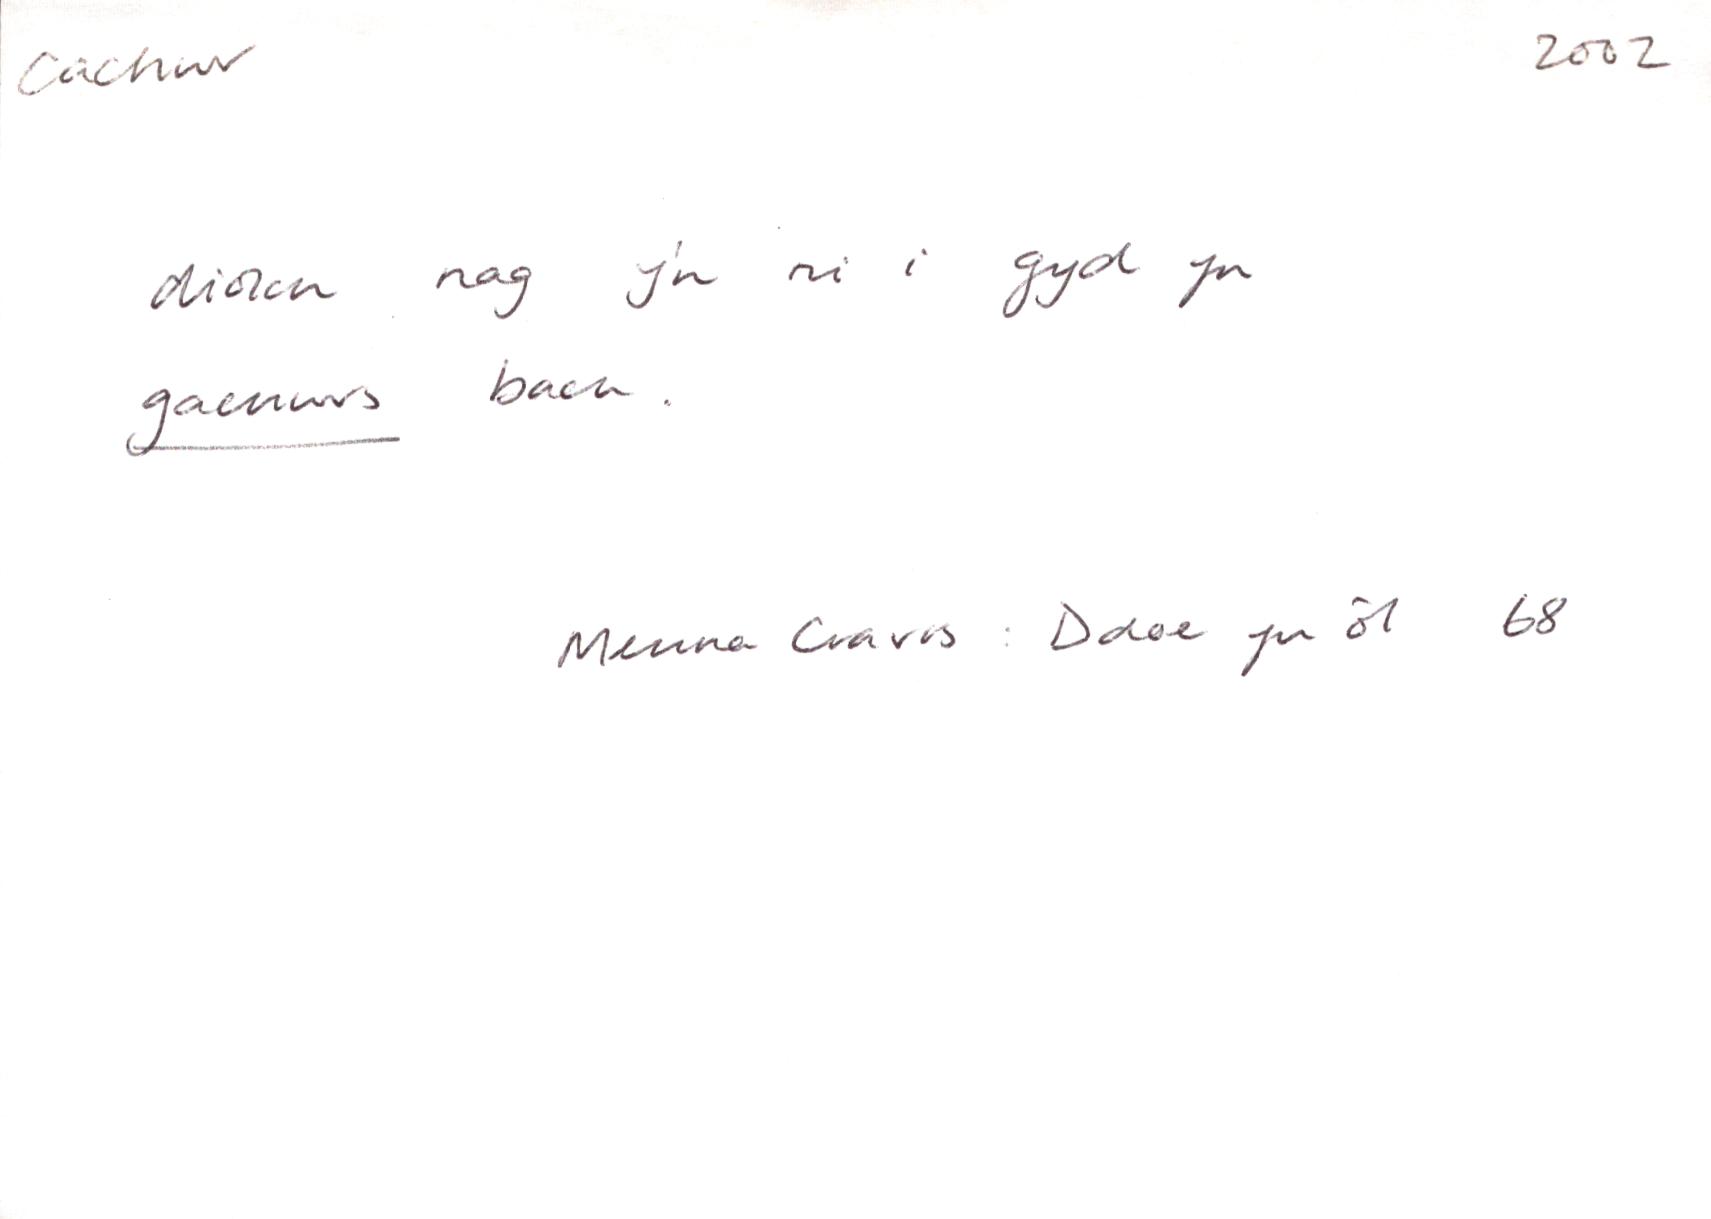 Cachwr 2002
diolch nag y'n ni i gyd yn
gachwrs bach.
Menna Cravos : Ddoe yn ôl 68